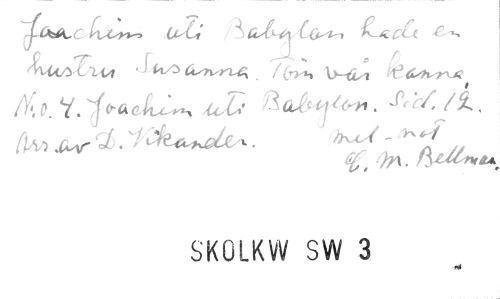 Joachim uti Babylon hade en
hustru Susanna. Töm vår kanna,
N:o. 4. Joachim uti Babylon. Sid. 12.
Arr. av D. Vikander. mel-not
C. M. Bellman.
SKOLKW SW 3